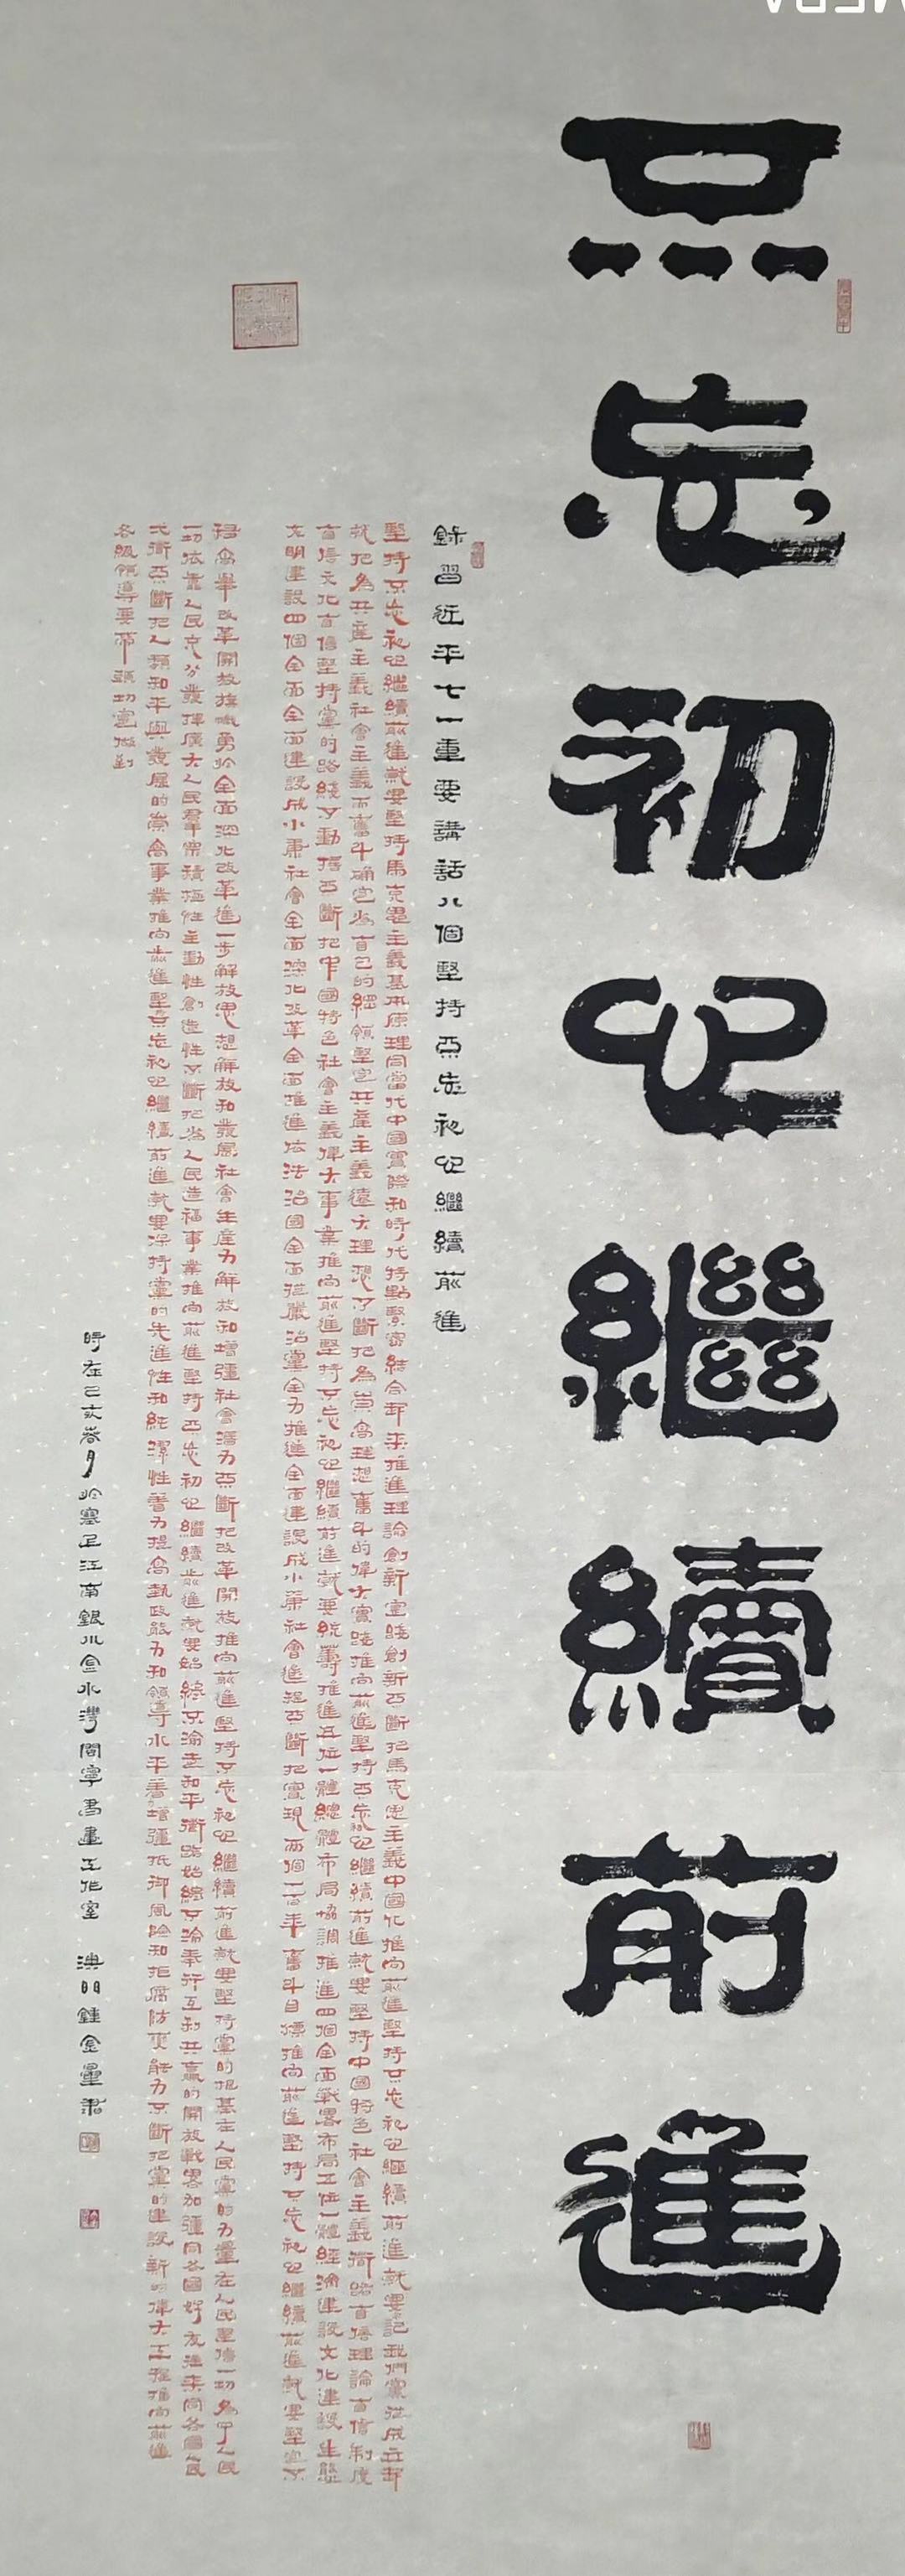 不忘初心繼續前進
錄習近平七一重要講話八個堅持不忘初心繼續前進
堅持不忘初心繼續前進就要堅持馬克思主義基本原理同當代中國實際和時代特點緊密結合起來推進理論創新實踐創新不斷把馬克思主義中國化推向前進堅持不忘初心繼續前進就要記我們黨從成立起
就把為共產主義社會主義而奮斗確定為自己的綱領堅定共產主義遠大理想不斷把為崇高理想奮斗的偉大實踐推向前進堅持不忘初心繼續前進就要堅持中國特色社會主義道路自信理論自信制度
自信文化自信堅持黨的路綫不動搖不斷把中國特色社會主義偉大事業推向前進堅持不忘初心繼續前進就要統籌推進五位一體總體布局協調推進四個全面戰略布局五位一體經濟建設文化建設生態
文明建設四個全面全面建設成小康社會全面深化改革全面推進依法治國全面從嚴治黨全力推進全面建設成小康社會進程不斷把實現兩個一百年奮斗目標推向前進堅持不忘初心繼續前進就要堅定不
移高舉改革開放旗幟勇於全面深化改革進一步解放思想解放和發展社會生產力解放和增強社會活力不斷把改革開放推向前進堅持不忘初心繼續前進就要堅持黨的根基在人民黨的力量在人民堅信一切為了人民
一切依靠人民充分發揮廣大人民群眾積極性主動性創造性不斷把為人民造福事業推向前進堅持不忘初心繼續前進就要始終不渝走和平道路始終不渝奉行互利共贏的開放戰略加強同各國好友往來同各國人民
一道不斷把人類和平與發展的崇高事業推向前進堅不忘初心繼續前進就要保持黨的先進性和純潔性著力提高執政能力和領導水平著增強抵御風險和拒腐防變能力不斷把黨的建設新的偉大工程推向前進
各級領導要帶頭切實做到
時在己亥春月於塞上江南銀川金水灣閻寧書畫工作室 澳門鍾金量肅